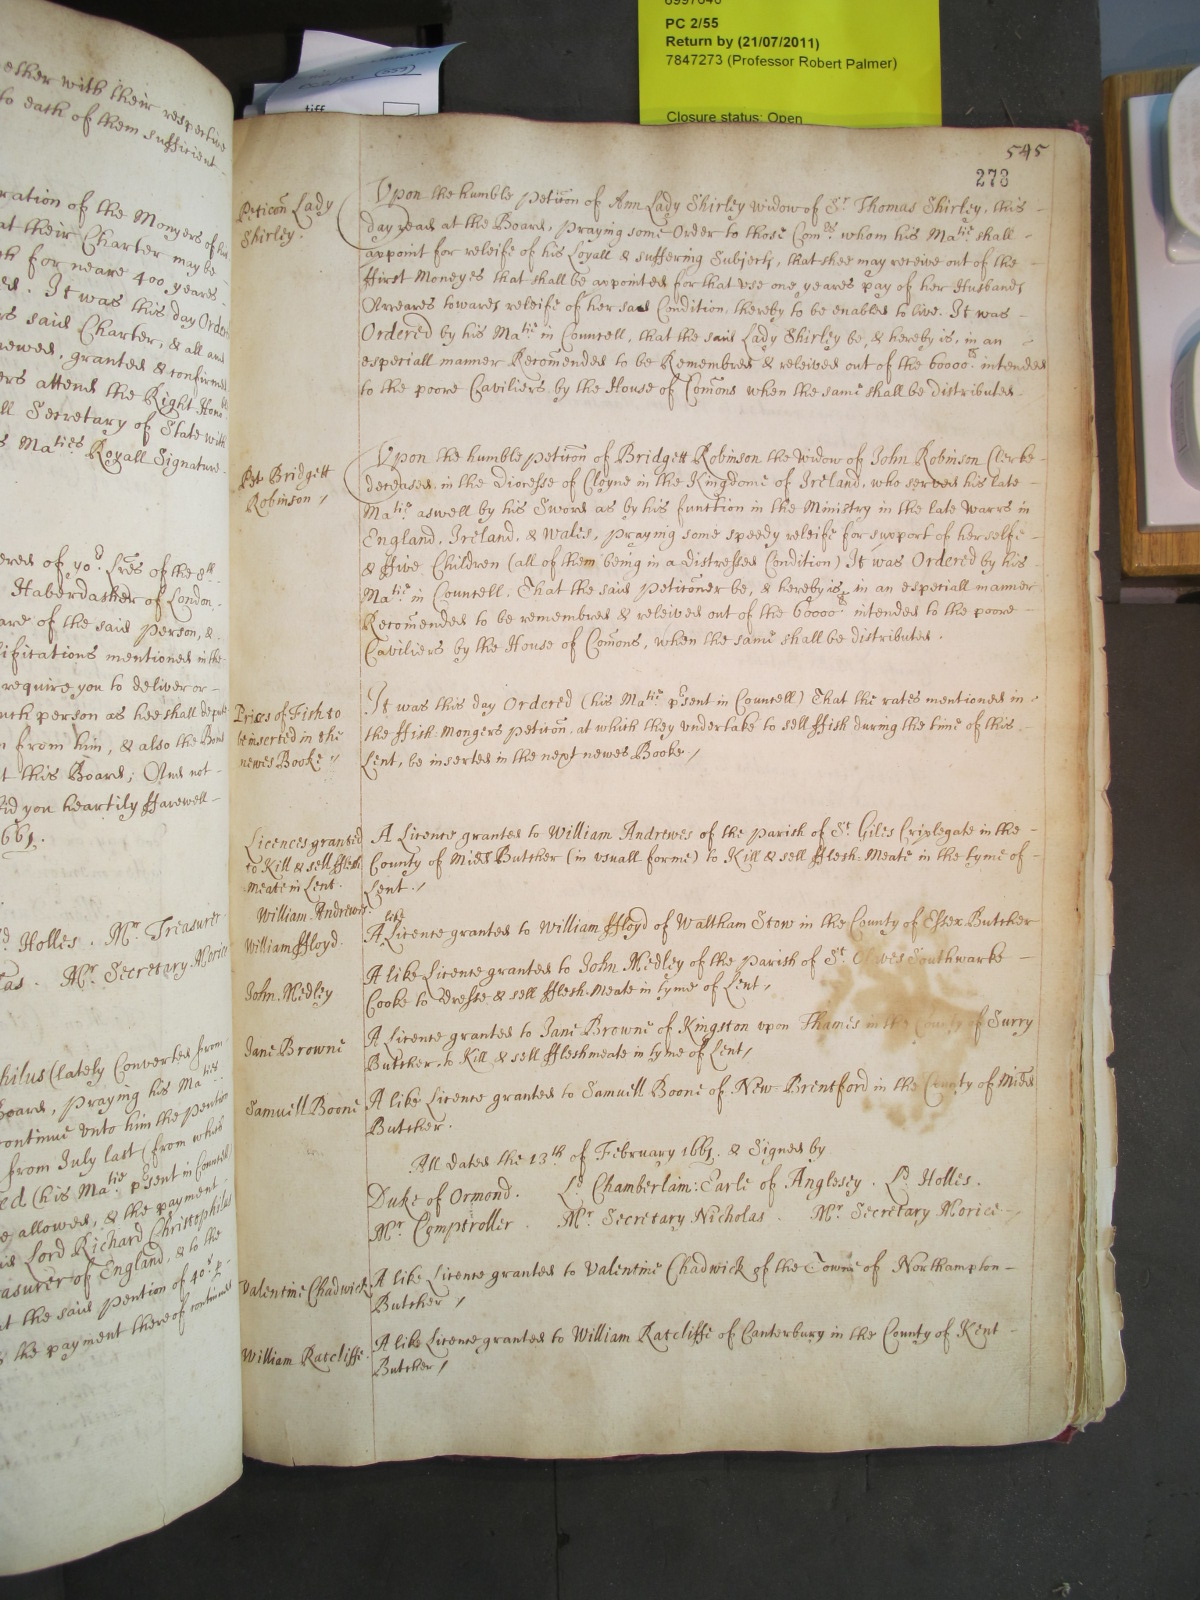 6997646
PC 2/55
Return by (21/07/2011)
7847273 (Professor Robert Palmer)
Closure status: Open
tiff
ether with their respective
to each of them sufficient
ration of the Monyers of his
at their Charter may be
for neare 400 yeares
ed. It was this day Order
rs said Charter, & all and
newed, granted & confirmed
ers attend the Right Hono
ll Secretary of State with
s Maties Royall Signature
ered of yor Lres of the 8th
Haberdasher of London,
are of the said person, &
lifications mentioned in the
require you to deliver or
uch person as hee shall depute
n from him, & also the Bond
t this Board; And not
id you heartily Farewell
661.
Ld Holles. Mr Treasurer
las. Mr Secretary Morice
philus (lately Converted from
Board, praying his Matie
continue unto him the pention
from July last (from which
ed (his Matie pSent in Councell)
e allowed, & the payment
id Lord Richard Christophilus
easurer of England, & to the
t the said pention of 40s p
the payment thereof continued
545
273
Peticōn Lady
Shirley.
Vpon the humble Peticōn of Ann Lady Shirley widow of Sr Thomas Shirley, this
day read at the Board, praying some Order to those Comrs whom his Matie shall
appoint for releife of his Loyall & suffering Subjects, that shee may receive out of the
ffirst Moneyes that shall be appointed for that vse one yeares pay of her Husbands
Arreares towards releife of her sad Condition, thereby to be enabled to live. It was
Ordered by his Matie in Councell, that the said Lady Shirley be, & hereby is, in an
especiall manner Recom̄ended to be Remembred & releived out of the 60000ls intended
to the poore Cavileirs by the House of Com̄ons when the same shall be distributed.
Pet Bridgett
Robinson /
Vpon the humble peticōn of Bridgett Robinson the Widow of John Robinson Clerke
deceased, in the Diocesse of Cloyne in the Kingdome of Ireland, who served his late
Matie aswell by his Sword as by his function in the Ministry in the late Warrs in
England, Ireland, & Wales, praying some speedy releife for support of herselfe
& ffive Children (all of them being in a distressed Condition) It was Ordered by his
Matie in Councell, That the said Peticōner be, & hereby is, in an especiall manner
Recom̄ended to be remembred & releived out of the 60000ls intended to the poore
Cavileirs by the House of Com̄ons, when the same shall be distributed.
Prices of Fish to
be inserted in the
newes Booke //
It was this day Ordered (his Matie pSent in Councell) That the rates mentioned in
the ffish-Mongers peticōn, at which they vndertake to sell ffish during the time of this
Lent, be inserted in the next newes Booke /
Licences granted
to Kill & sell fflesh
meate in Lent.
William Andrewes.
A Licence granted to William Andrewes of the parish of St Giles Criplegate in the
County of Midd Butcher (in vsuall forme) to Kill & sell fflesh-Meate in the tyme of
Lent /
William ffloyd.
A like Licence granted to William ffloyd of Waltham Stow in the County of Essex Butcher
John Medley
A like Licence granted to John Medley of the parish of St Olives Southwarke
Cooke to dresse & sell fflesh-Meate in tyme of Lent /
Jane Browne
A Licence granted to Jane Browne of Kingston vpon Thames in the County of Surry
Butcher, to Kill & sell ffleshmeate in tyme of Lent /
Samuell Boone
A like Licence granted to Samuell Boone of New-Brentford in the County of Midd
Butcher.
All dated the 13th of February 1661. & Signed by
Duke of Ormond. Ld Chamberlain: Earle of Anglesey. Ld Holles.
Mr Comptroller. Mr Secretary Nicholas. Mr Secretary Morice
Valentine Chadwick
A like Licence granted to Valentine Chadwick of the Towne of Northampton
Butcher /
William Ratcliffe.
A like Licence granted to William Ratcliffe of Canterbury in the County of Kent
Butcher /